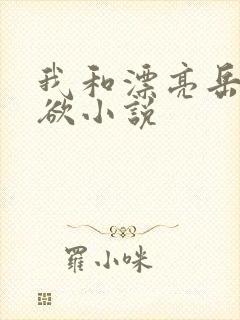 我和漂亮岳
欲小説
羅小咪